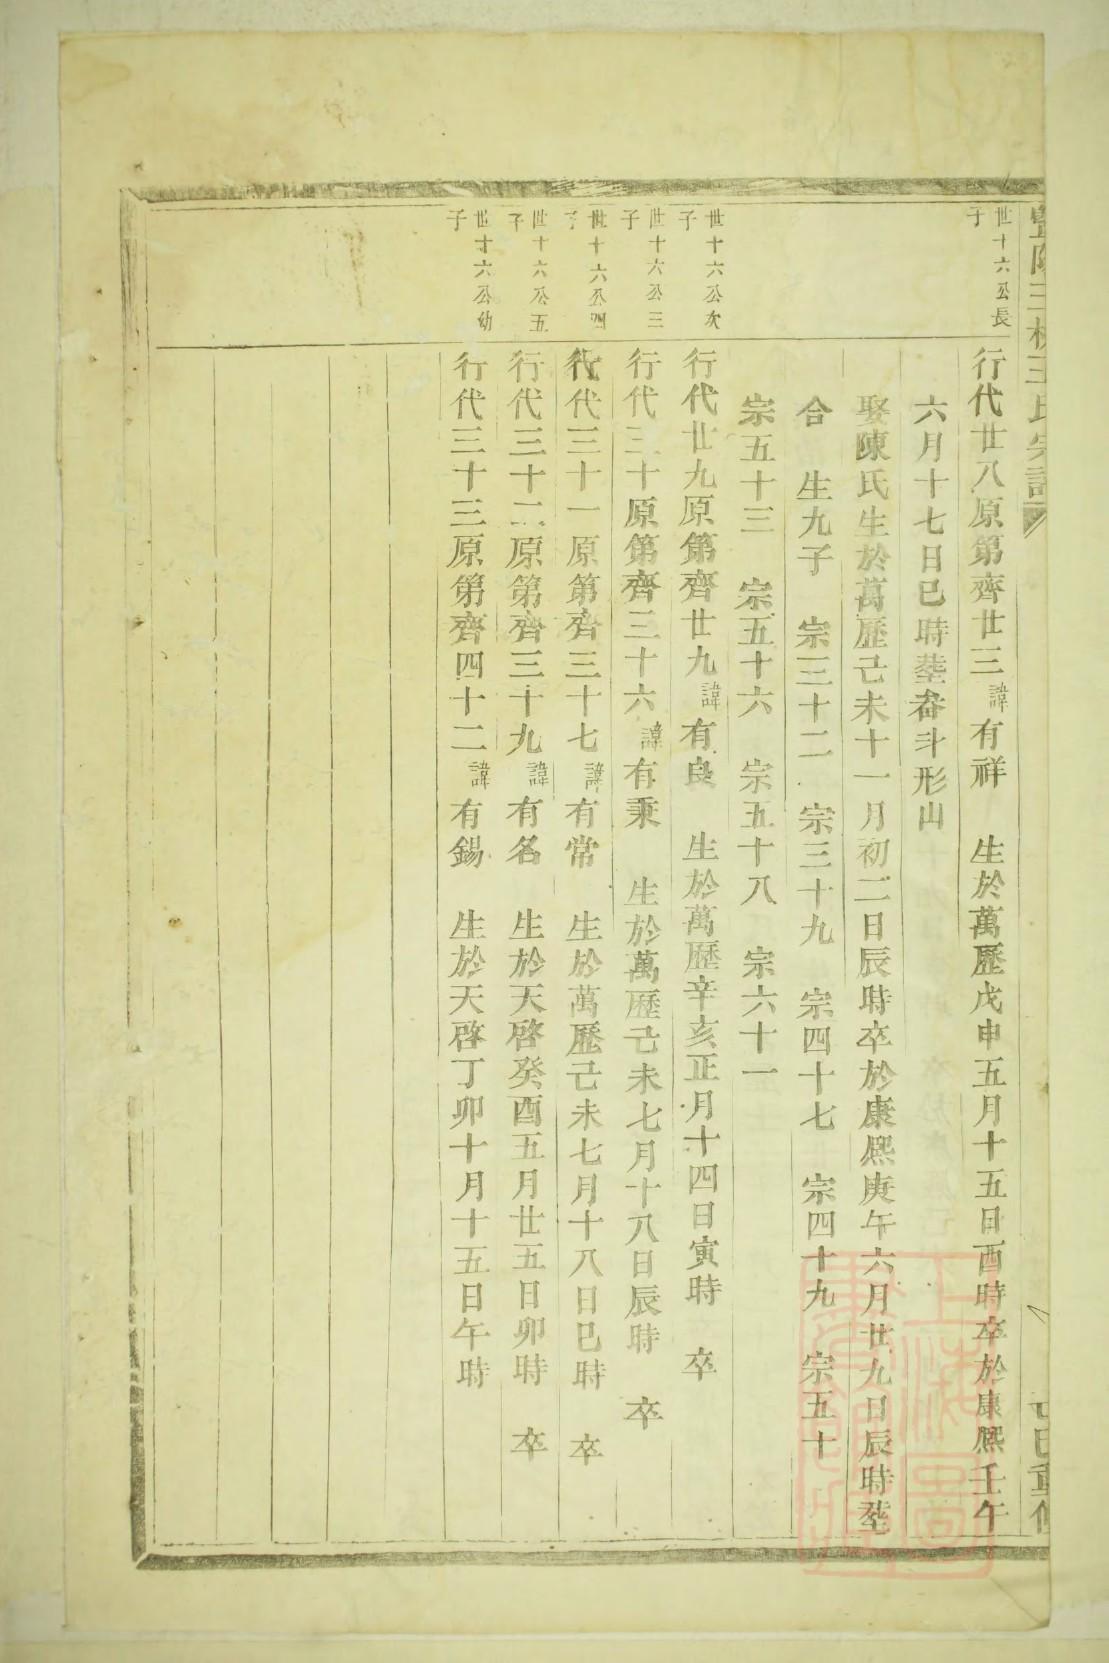 世十六公長
子
行代廿八原第齊廿三諱有祥　生於萬歷戊申五月十五日酉時卒於康熙壬午
六月十七日巳時塟畚斗形山
娶陳氏生於萬歷己未十一月初二日辰時卒於康熙庚午六月廿九日辰時塟
合　生九子　宗三十二　宗三十九　宗四十七　宗四十九　宗五十
宗五十三　宗五十六　宗五十八　宗六十一
世十六公次
子
行代廿九原第齊廿九諱有良　生於萬歷辛亥正月十四日寅時　卒
世十六公三
子
行代三十原第齊三十六諱有秉　生於萬歷己未七月十八日辰時　卒
世十六公四
子
行代三十一原第齊三十七諱有常　生於萬歷己未七月十八日巳時　卒
世十六公五
子
行代三十二原第齊三十九諱有名　生於天啓癸酉五月廿五日卯時　卒
世十六公幼
子
行代三十三原第齊四十二諱有錫　生於天啓丁卯十月十五日午時